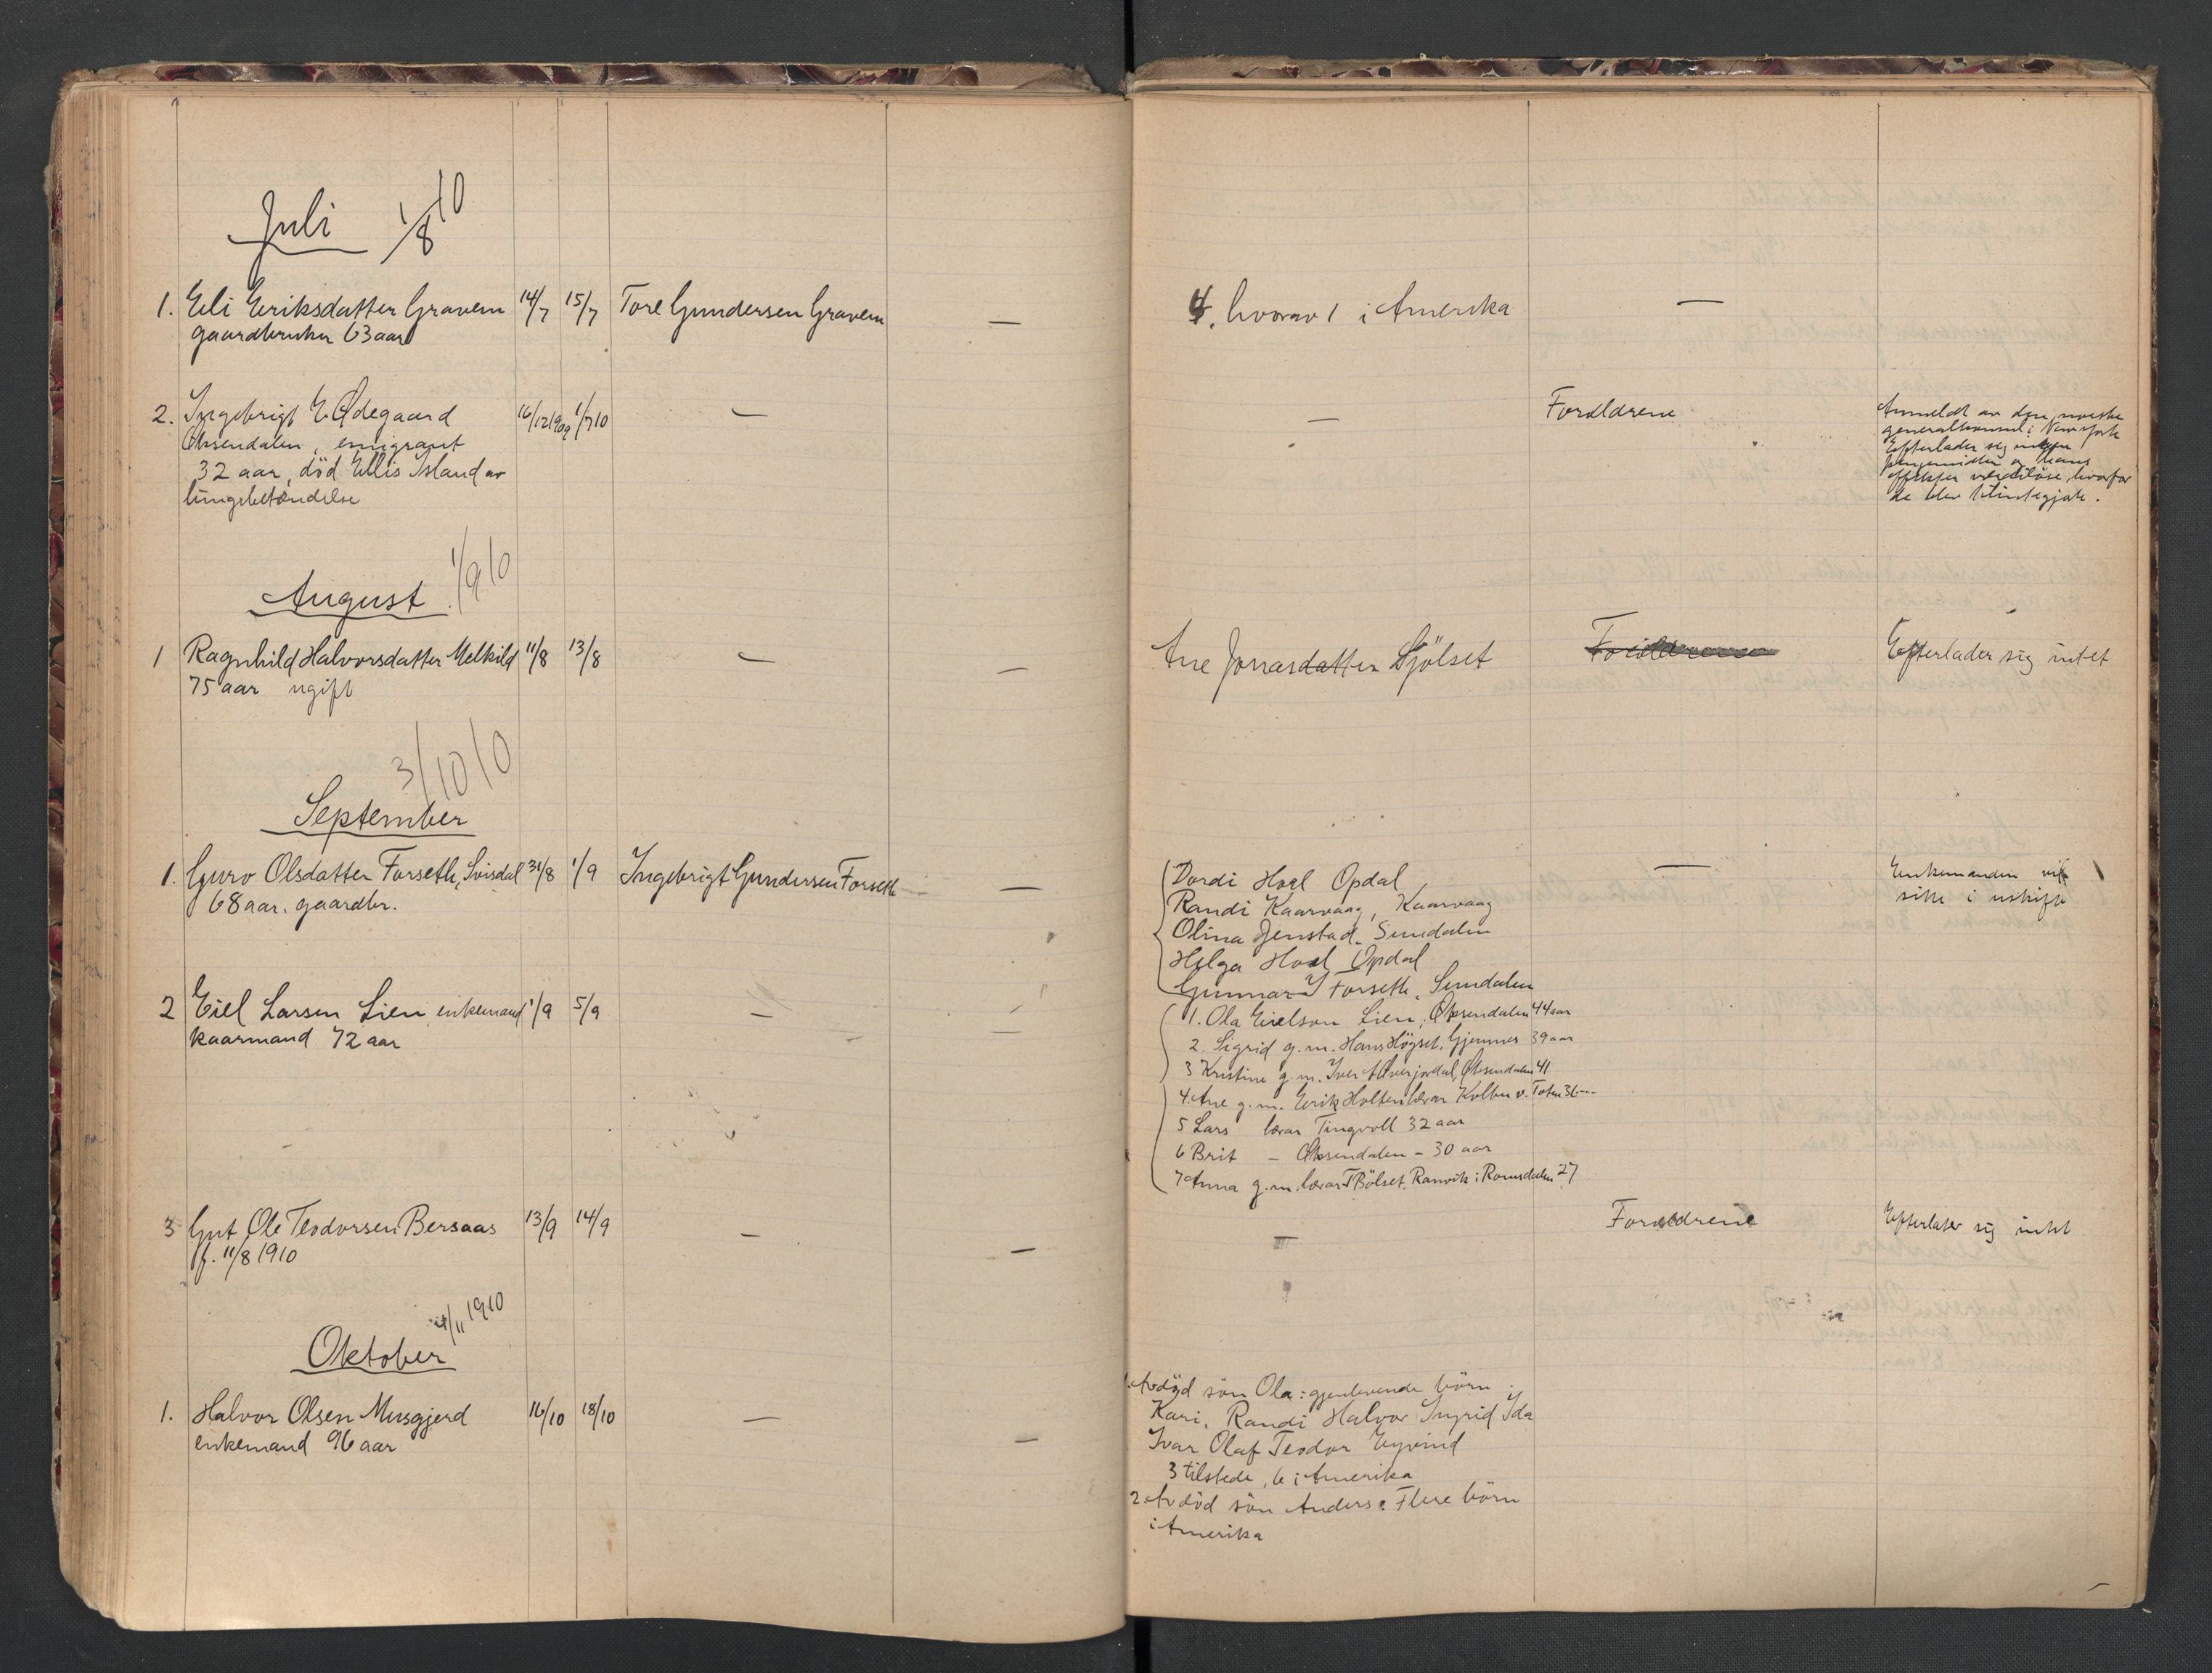 Juli 1/8 10
1. Eli Eriksdatter Gravem 14/7 15/7 Tore Gundersen Gravem — 4, hvorav 1 i Amerika —
gaardbruker 63 aar
2. Ingebrigt E Ødegaard 16/12 1909 1/7 10 — — Forældrene Anmeldt av den norske
Øksendalen, emigrant generalkonsul i New York
32 aar, död Ellis Island av Efterlader sig ingen
lungebetændelse pengemidler og hans
effekter værdilöse, hvorfor
de blev tilintegjorte.
August 1/9 10
1 Ragnhild Halvorsdatter Melkild 11/8 13/8 — — Ane Jonasdatter Sjölset Forældrene Efterlader sig intet
75 aar ugift
3/10 10
September
1. Guro Olsdatter Forseth, Svisdal 31/8 1/9 Ingebrigt Gundersen Forseth — Dordi Hoel Opdal — Enkemanden vil
68 aar. gaardbr. Randi Kaarvaag, Kaarvaag sitte i uskifte
Olina Jenstad. Sundalen
Helga Hoel Opdal
Gunnar I Forseth, Sundalen
2 Eiel Larsen Lien enkemand 1/9 5/9 — — 1. Ola Eielson Lien, Øksendalen 44 aar
kaarmand 72 aar 2. Sigrid g.m. Hans Högset, Gjemnes 39 aar
3 Kristine g.m. Iver Øverjordal, Øksendalen 41
4. Ane g.m. Erik Holten lærar Kolbu v. Toten 36 —
5 Lars lærar Tingvoll 32 aar
6 Brit — Øksendalen – 30 aar
7 Anna g.m. lærar T Bölset. Ranvik i Romsdalen 27
3 Gut Ole Teodorsen Bersaas 13/9 14/9 — — — Forældrene Efterlater sig intet
f. 11/8 1910
4/11 1910
Oktober
1. Halvor Olsen Musgjerd 16/10 18/10 — — 1. Avdöd sön Ola: gjenlevende börn:
enkemand 96 aar Kari, Randi Halvor Ingrid Ida
Ivar Olaf Teodor Eyvind
3 tilstede, 6 i Amerika
2. Avdöd sön Anders: Flere börn
i Amerika